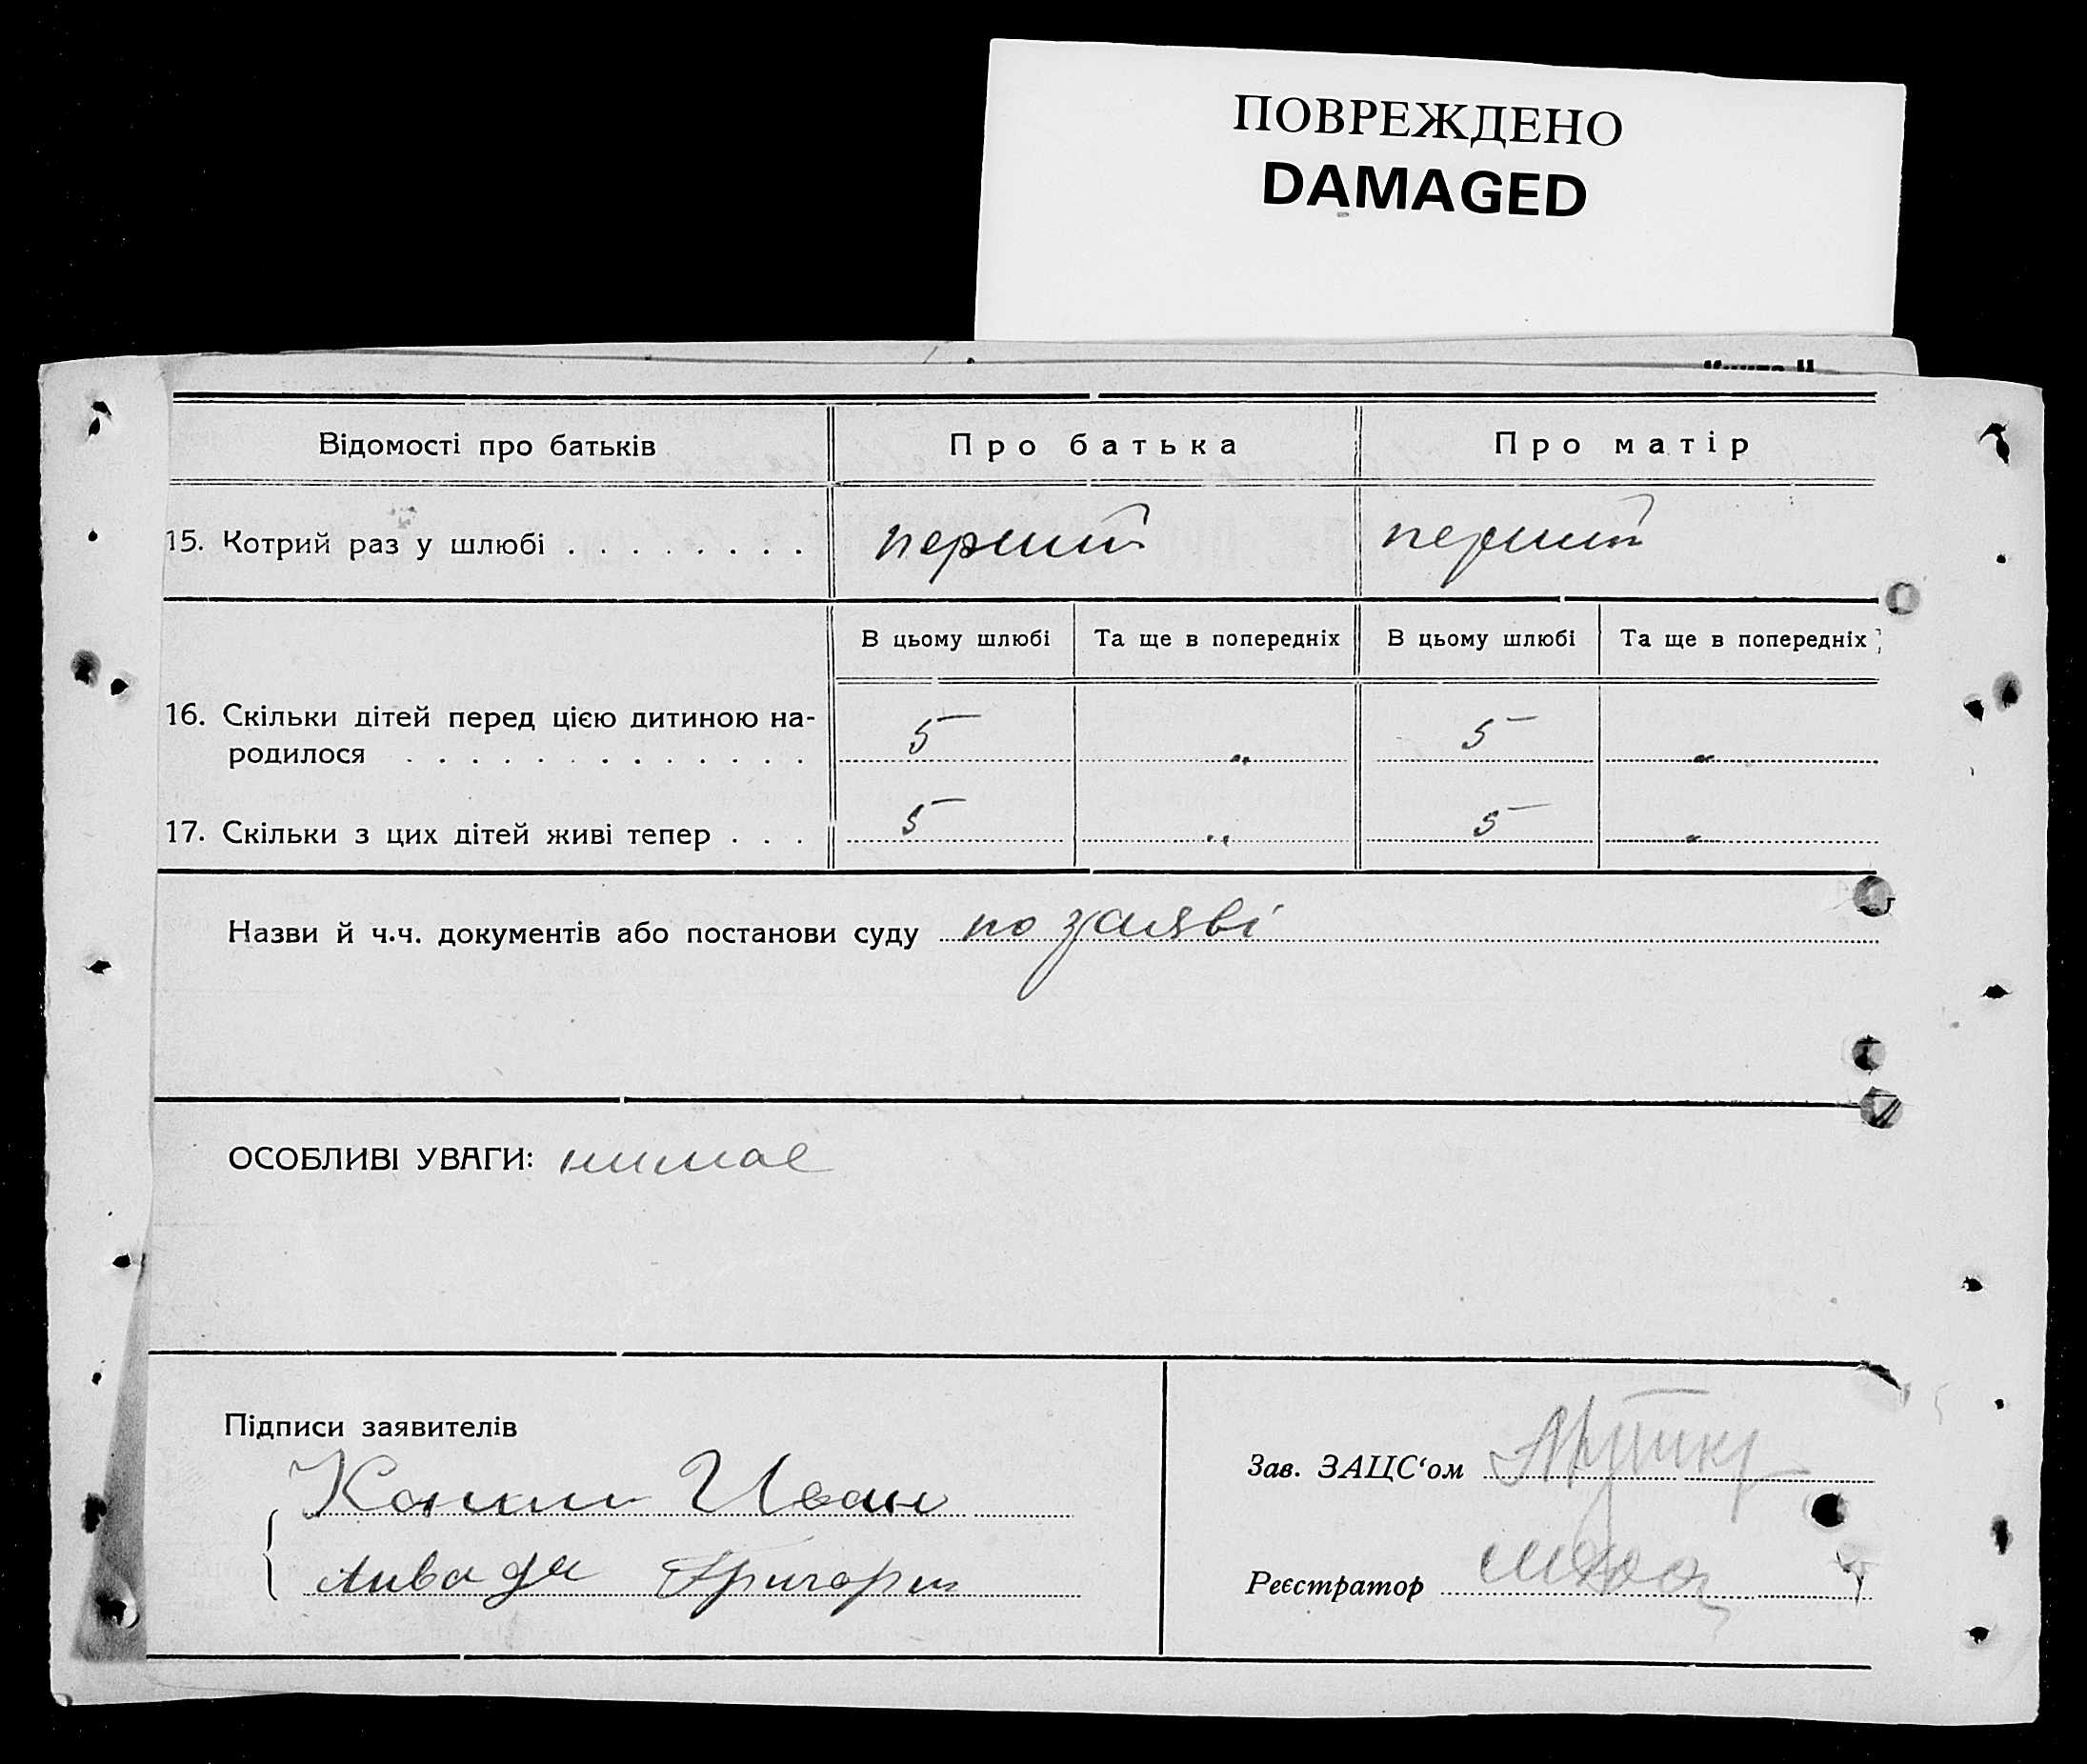 ПОВРЕЖДЕНО
DAMAGED
Відомості про батьків
Про батька
Про матір
15. Котрий раз у шлюбі . . . . . . . .
перший
перший
В цьому шлюбі
Та ще в попередніх
В цьому шлюбі
Та ще в попередніх
16. Скільки дітей перед цією дитиною на-
родилося . . . . . . . . . . . . .
5
„
5
„
17. Скільки з цих дітей живі тепер . . .
5
„
5
„
Назви й ч.ч. документів або постанови суду по заяві
ОСОБЛИВІ УВАГИ: нимае
Підписи заявителів
Иван
Ливада Григорий
Зав. ЗАЦС‘ом
Реєстратор